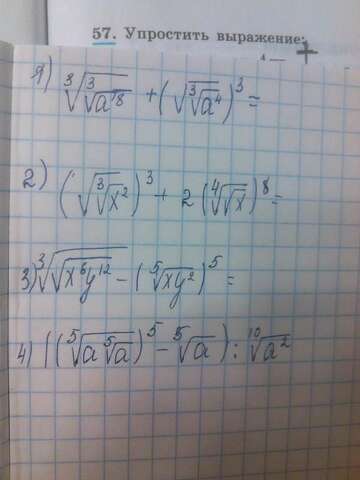 57. Упростить выражение:
1) ∛(∛(a¹⁸)) + (√(∛(a⁴)))³ =
2) (√(∛(x²)))³ + 2(⁴√(√x))⁸ =
3) ∛(√(x⁶y¹²)) − (⁵√(xy²))⁵ =
4) ((⁵√(a⁵√a))⁵ − ⁵√a) : ¹⁰√(a²)